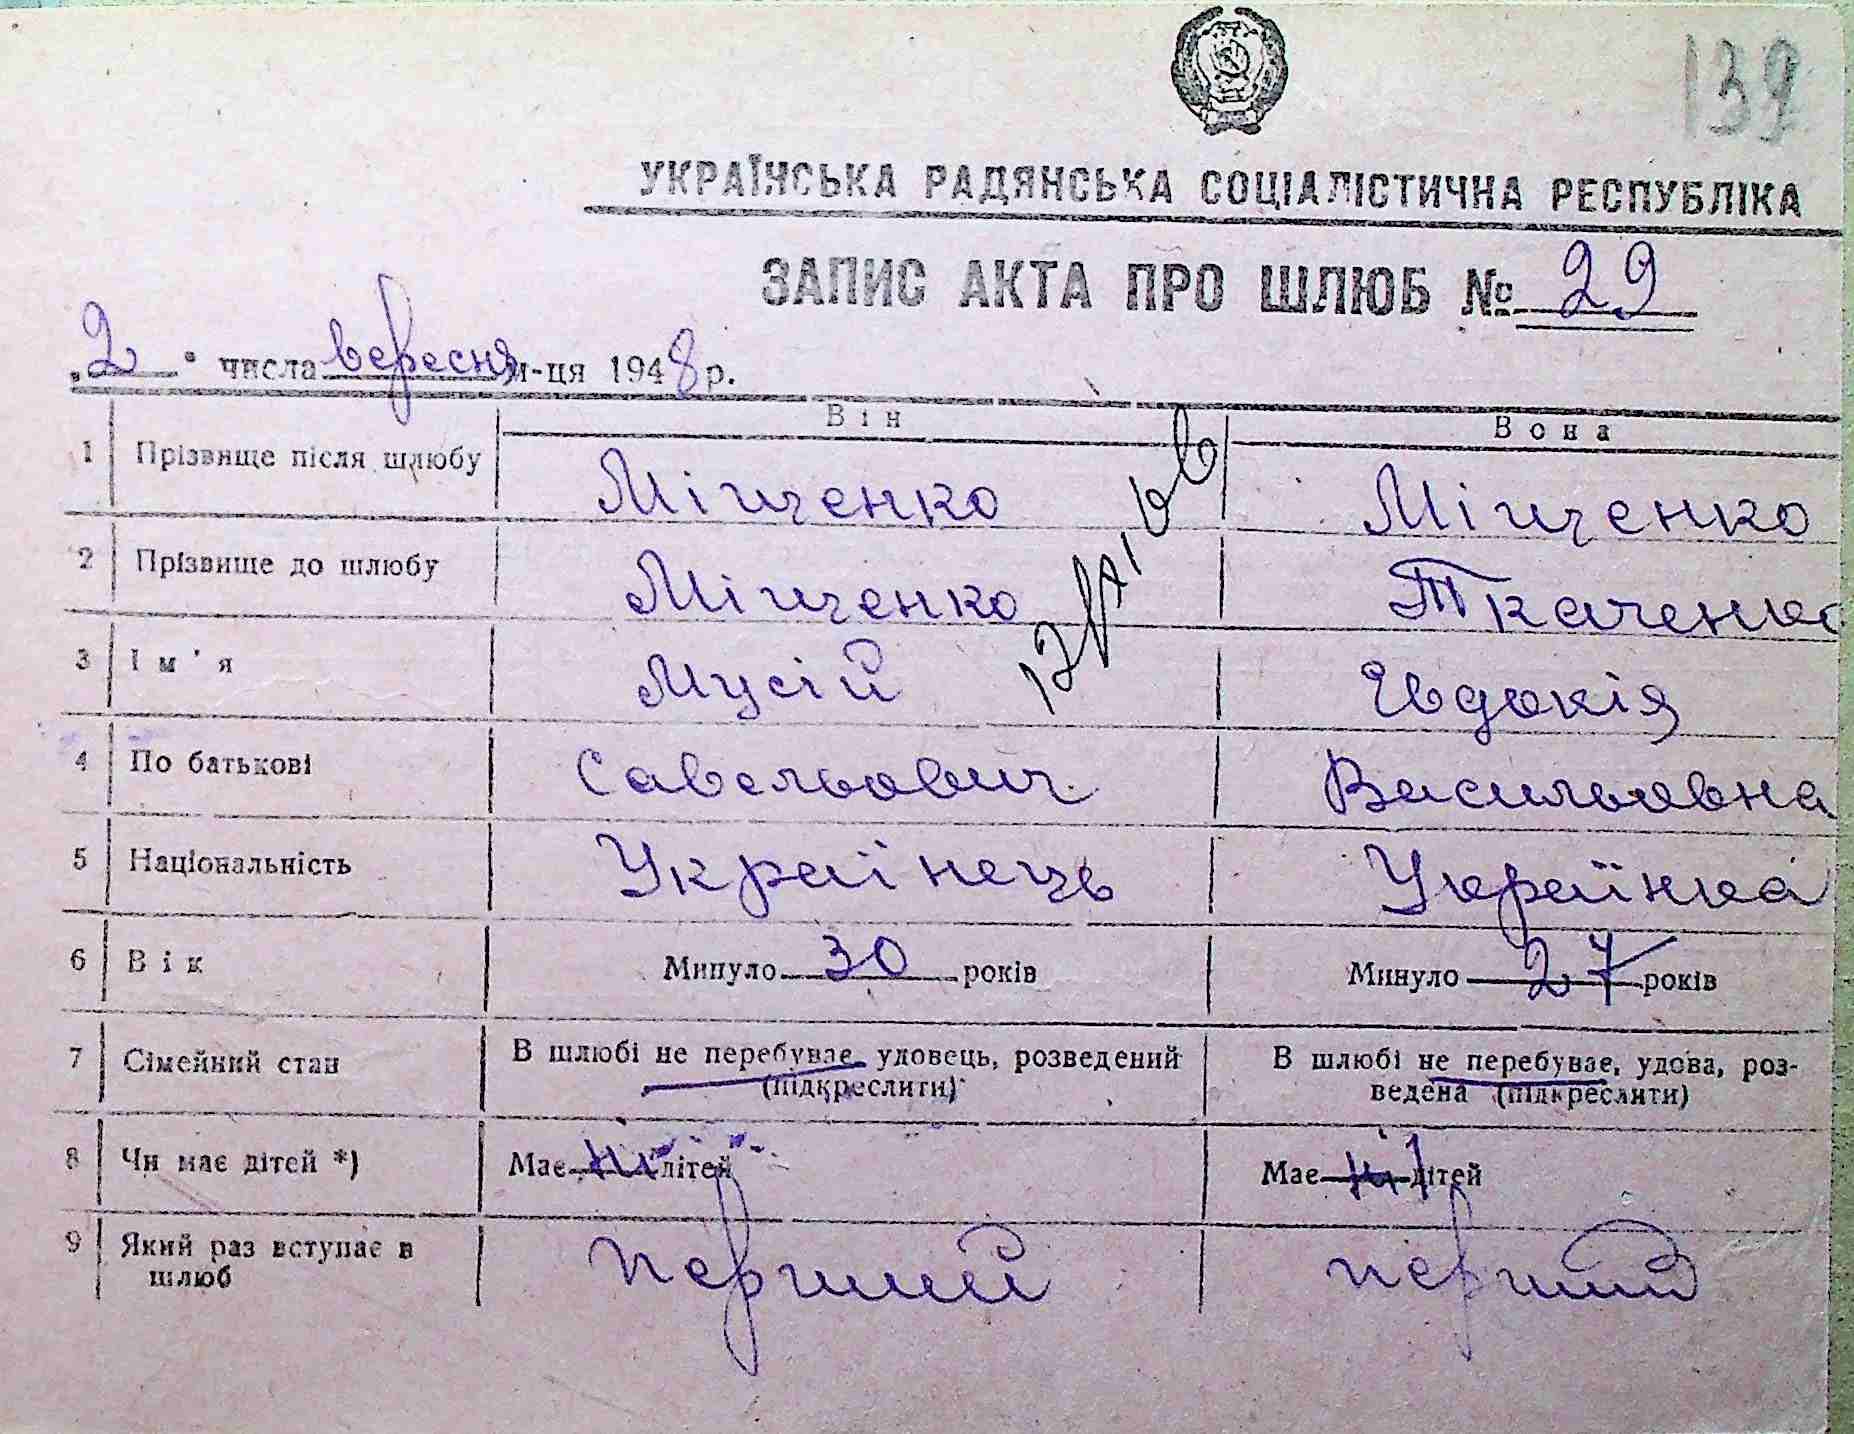 139
УКРАЇНСЬКА РАДЯНСЬКА СОЦІАЛІСТИЧНА РЕСПУБЛІКА
ЗАПИС АКТА ПРО ШЛЮБ № 29
„2" числа вересня м-ця 1948 р.
Він Вона
1 Прізвище після шлюбу Міщенко Міщенко
2 Прізвище до шлюбу Міщенко Ткаченко
3 Ім'я Мусій Евдокія
4 По батькові Савельович Васильовна
5 Національність Українець Українка
6 Вік Минуло 30 років Минуло 27 років
7 Сімейний стан В шлюбі не перебуває, удовець, розведений В шлюбі не перебуває, удова, роз-
(підкреслити) ведена (підкреслити)
8 Чи має дітей *) Має ні дітей Має ні дітей
9 Який раз вступає в перший перший
шлюб